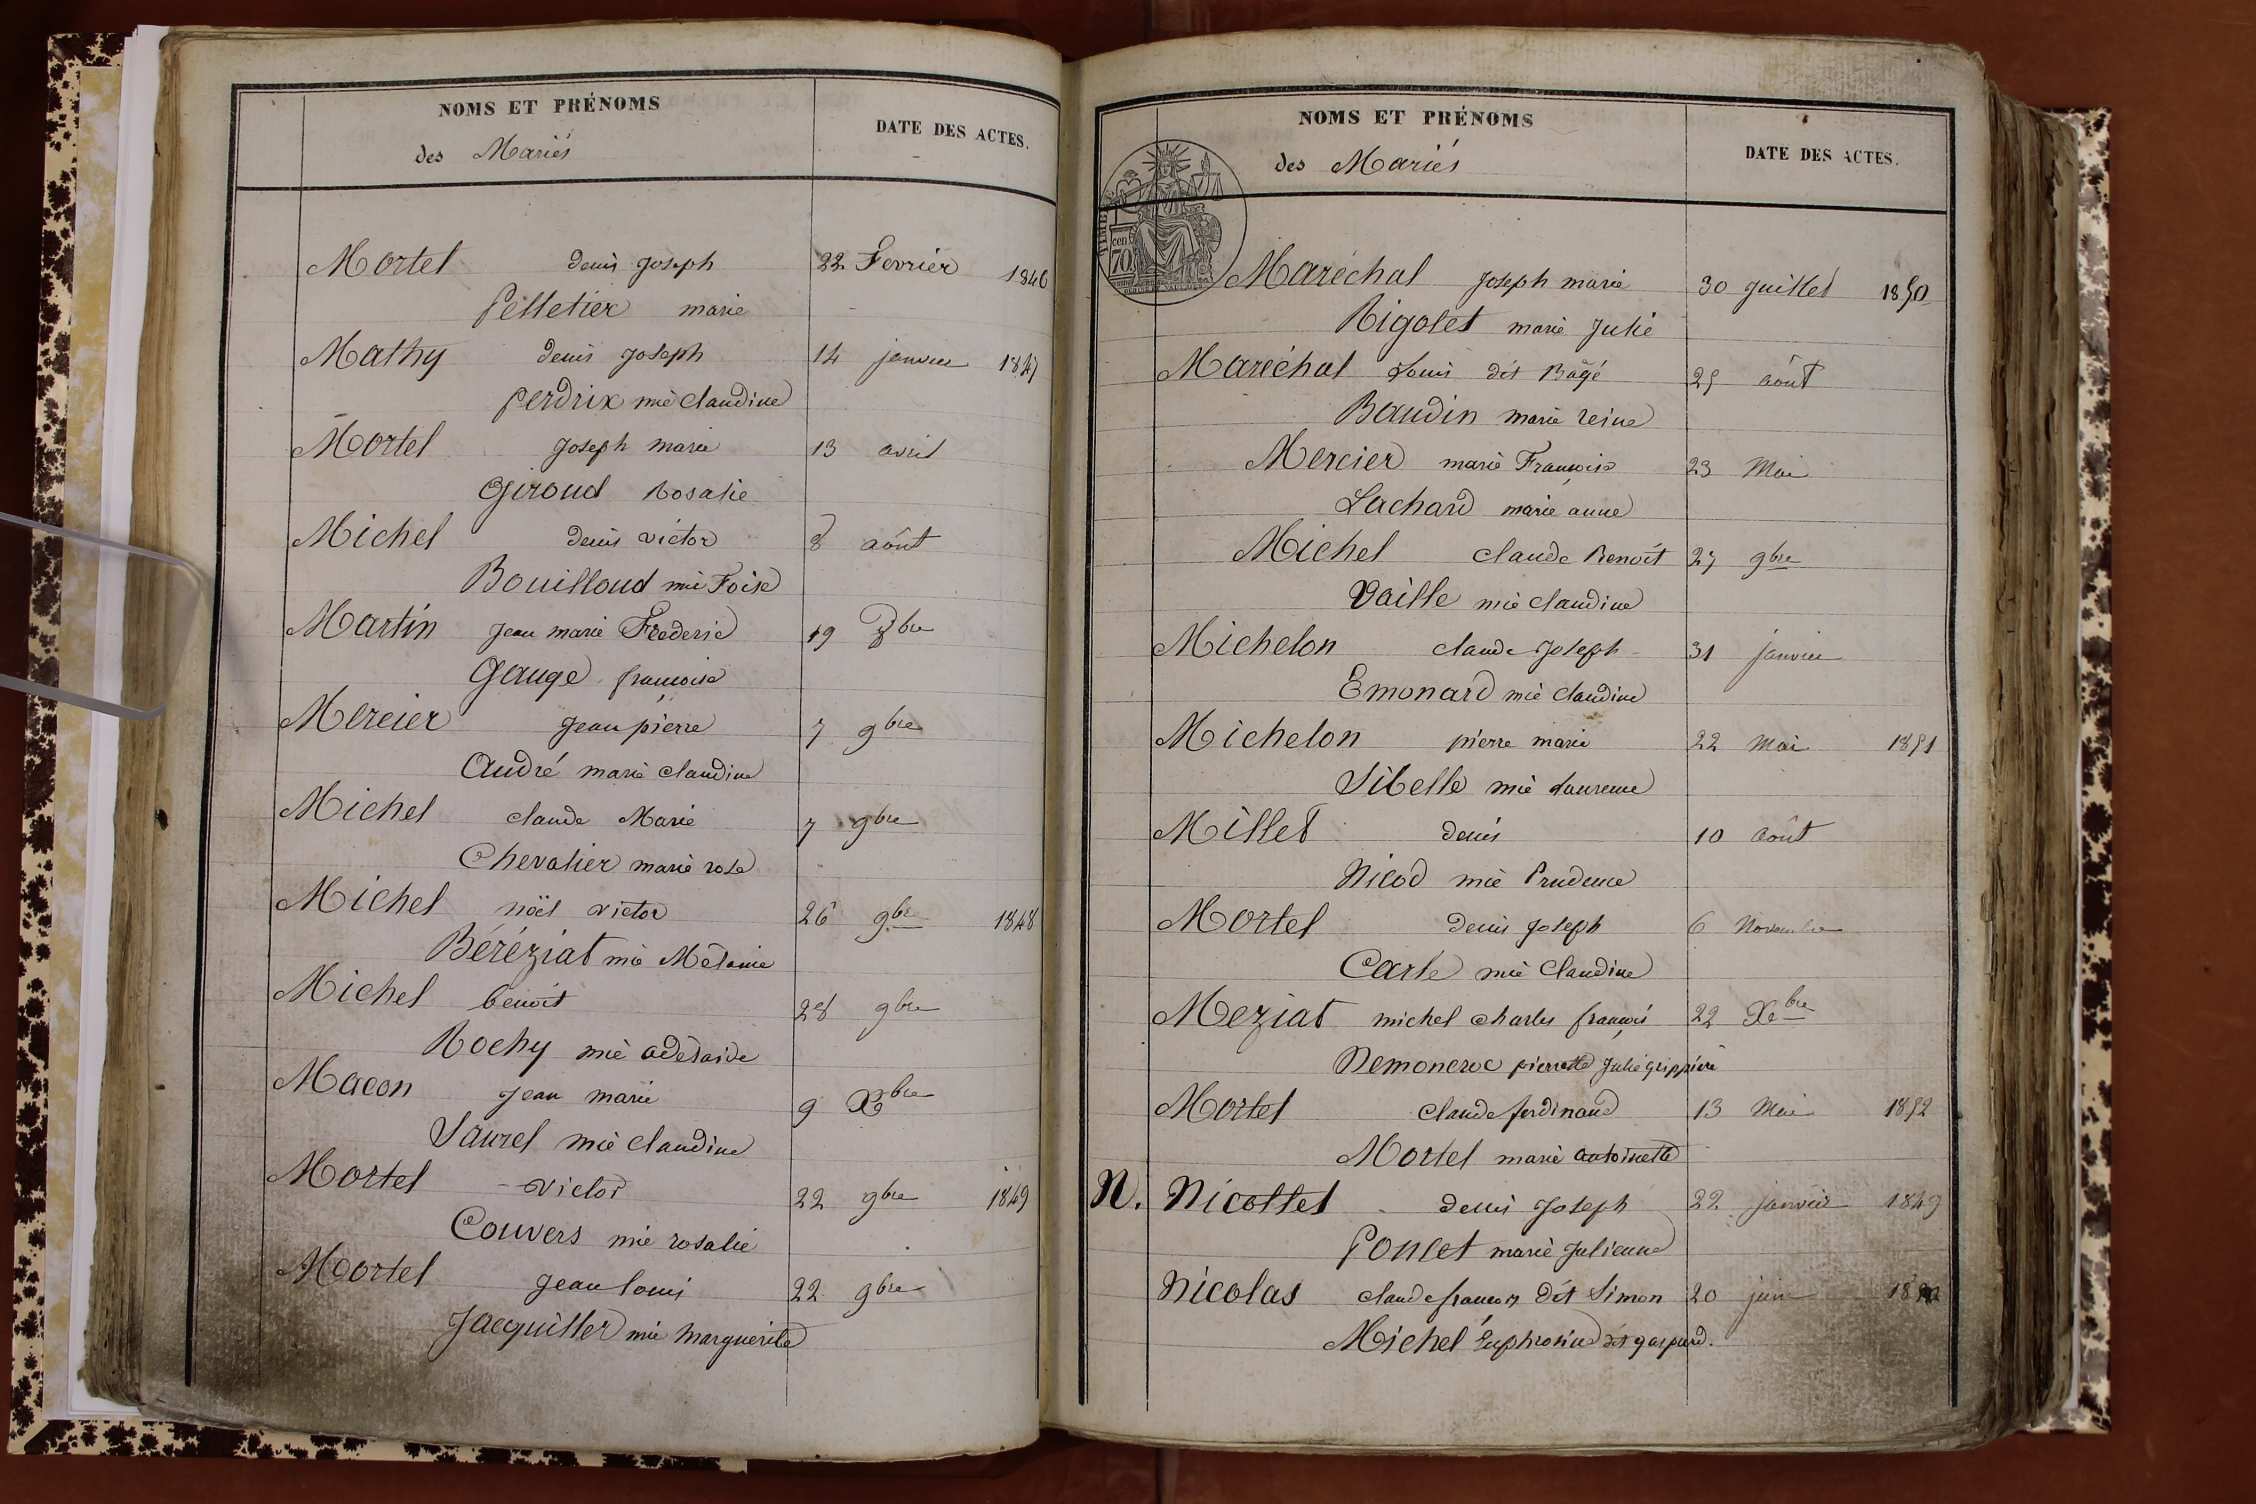 NOMS ET PRÉNOMS
des Mariés
DATE DES ACTES.
Mortel denis Joseph 22 Fevrier 1846
Pelletier marie
Mathy denis Joseph 14 janvier 1847
Perdrix mie claudine
Mortel Joseph marie 13 avril
Giroud Rosalie
Michel denis victor 8 août
Bouilloud mie Foise
Martin Jean marie Frederic 19 bre
Gauge françoise
Mercier Jean pierre 7 9bre
André marie claudine
Michel claude Marie 7 9bre
Chevalier marie rose
Michel noël victor 26 9bre 1848
Béréziat mie Mélanie
Michel benoit 28 9bre
Rochy mie adelaide
Macon Jean marie 9 Xbre
Saurel mie claudine
Mortel victor 22 9bre 1849
Couvers mie rosalie
Mortel Jean louis 22 9bre
Jacquiller mie Marguerite
NOMS ET PRÉNOMS
des Mariés
DATE DES ACTES.
cen 70
Maréchal Joseph marie 30 Juillet 1850
Rigolet marie Julie
Maréchal Louis dit Bâgé 25 août
Baudin marie reine
Mercier marie François 23 Mai
Lachard marie anne
Michel claude Benoit 27 9bre
Vaille mie claudine
Michelon claude Joseph 31 janvier
Emonard mie claudine
Michelon pierre marie 22 mai 1851
Sibelle mie Laurence
Millet denis 10 août
Nicod mie Prudence
Mortel denis Joseph 6 Novembre
Carle mie Claudine
Meziat michel charles françois 22 Xbre
pierrette Julie
Mortel claude ferdinand 13 Mai 1852
Mortel marie antoinette
N. Nicollet denis Joseph 22 janvier 1849
Poncet marie Julienne
Nicolas claude françois dit Simon 20 juin
Michel Euphrosine dit gaspard.